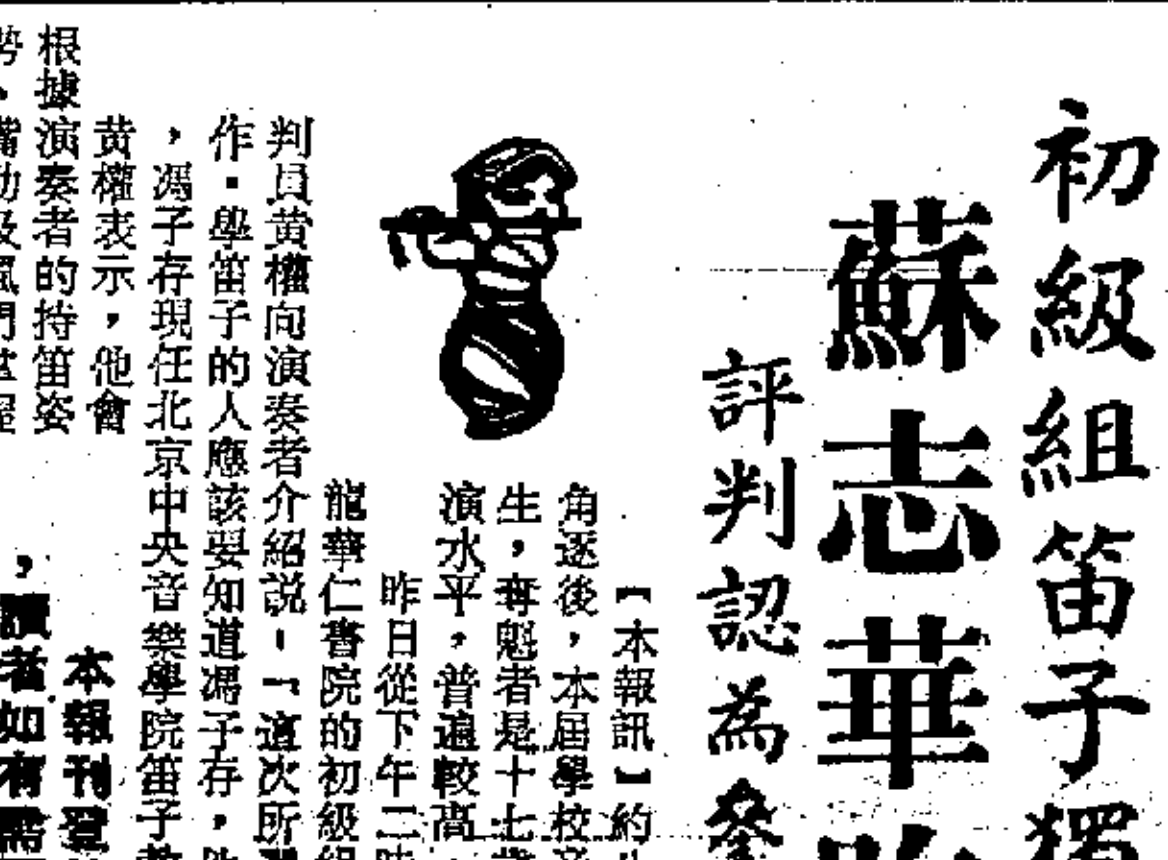 初級組笛子獨
蘇志華
評判認為參
【本報訊】約
角逐後，本屆學校音
生，奪魁者是十七歲
演水平，普遍較高，
昨日從下午二時
龍華仁書院的初級組
判員黃權向演奏者介紹説：「這次所
作．學笛子的人應該要知道馮子存，
，馮子存現任北京中央音樂學院笛子教
黃權表示，他會
根據演奏者的持笛姿
勢、嘴
本報刊登
，讀者如有需